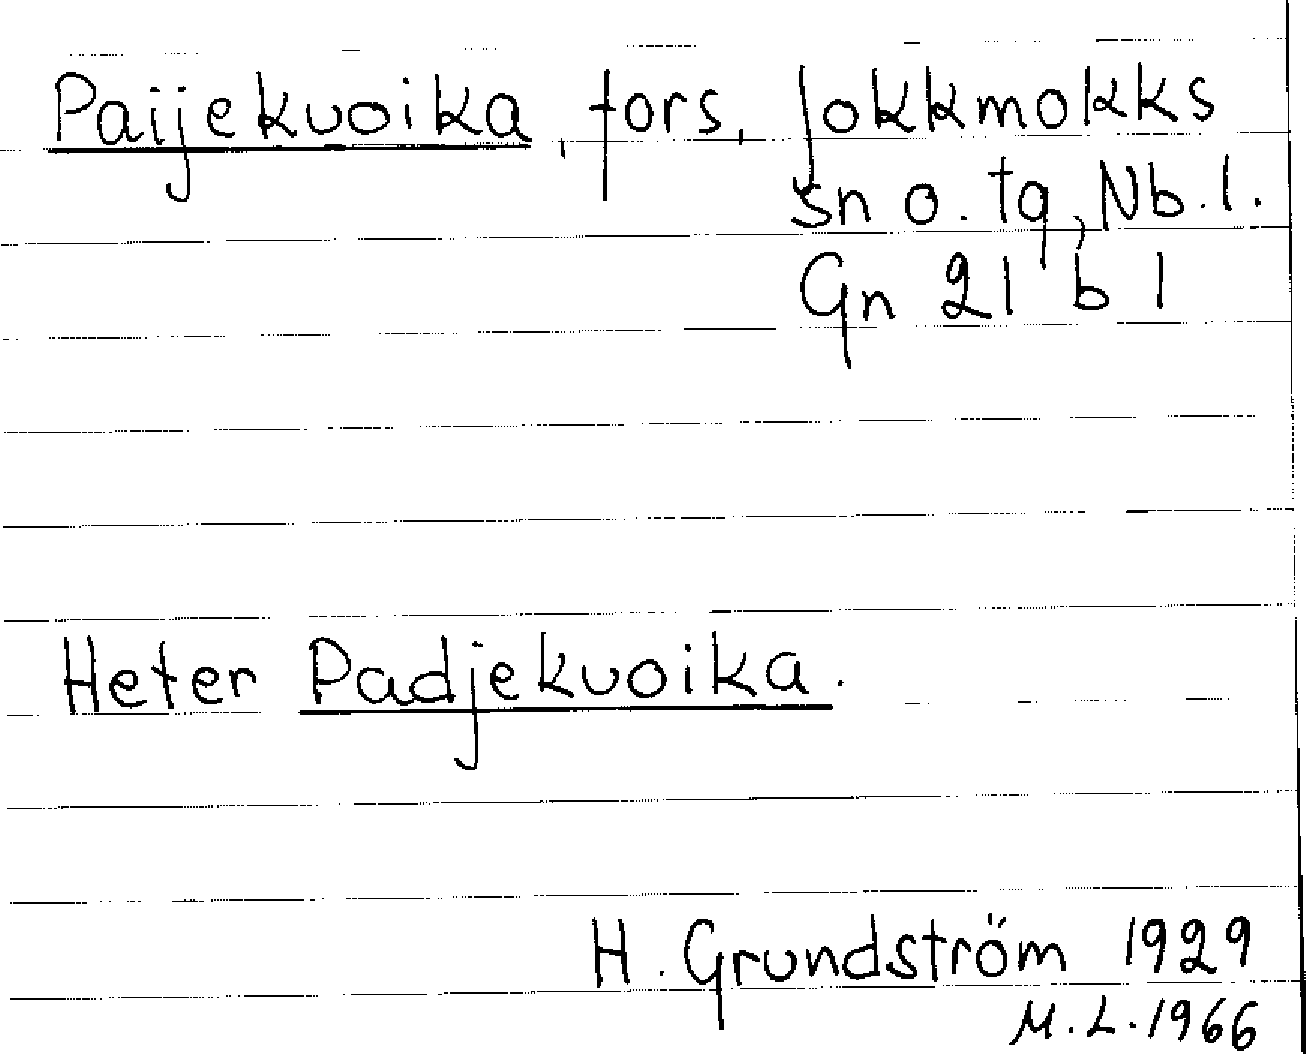 Paijekuoika, fors, Jokkmokks
sn o. tg, Nb. l.
Gn 21 b 1
Heter Padjekuoika.
H. Grundström 1929
M. L. 1966